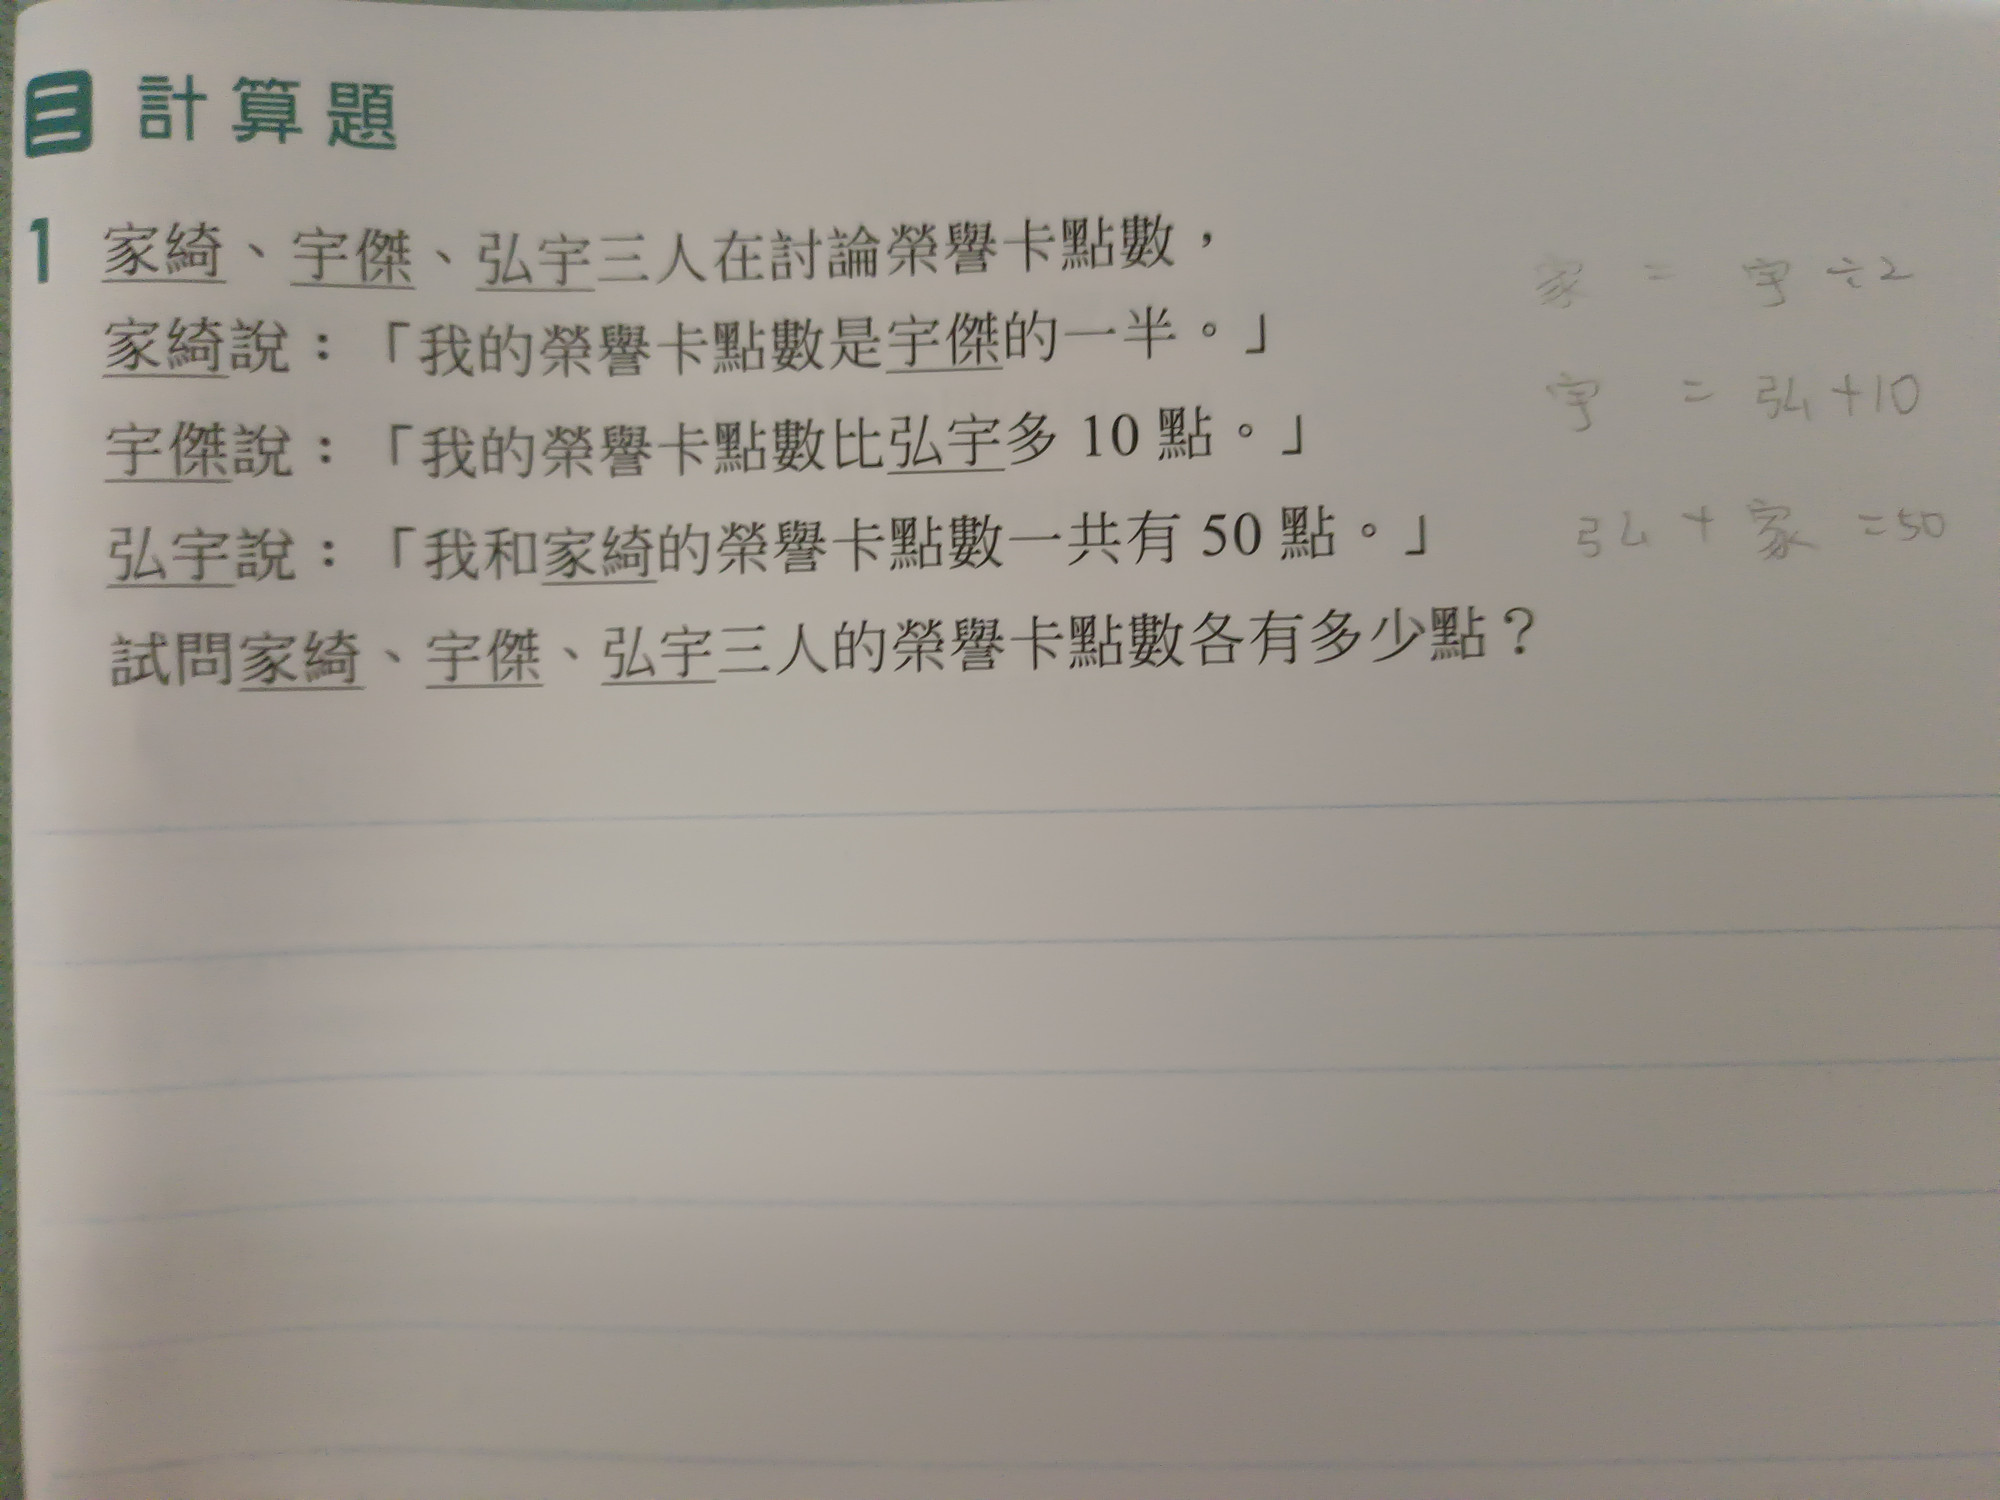 三 計算題
1 家綺、宇傑、弘宇三人在討論榮譽卡點數，
家綺說：「我的榮譽卡點數是宇傑的一半。」
宇傑說：「我的榮譽卡點數比弘宇多 10 點。」
弘宇說：「我和家綺的榮譽卡點數一共有 50 點。」
試問家綺、宇傑、弘宇三人的榮譽卡點數各有多少點？
家 = 宇 ÷2
宇 = 弘 +10
弘 + 家 =50